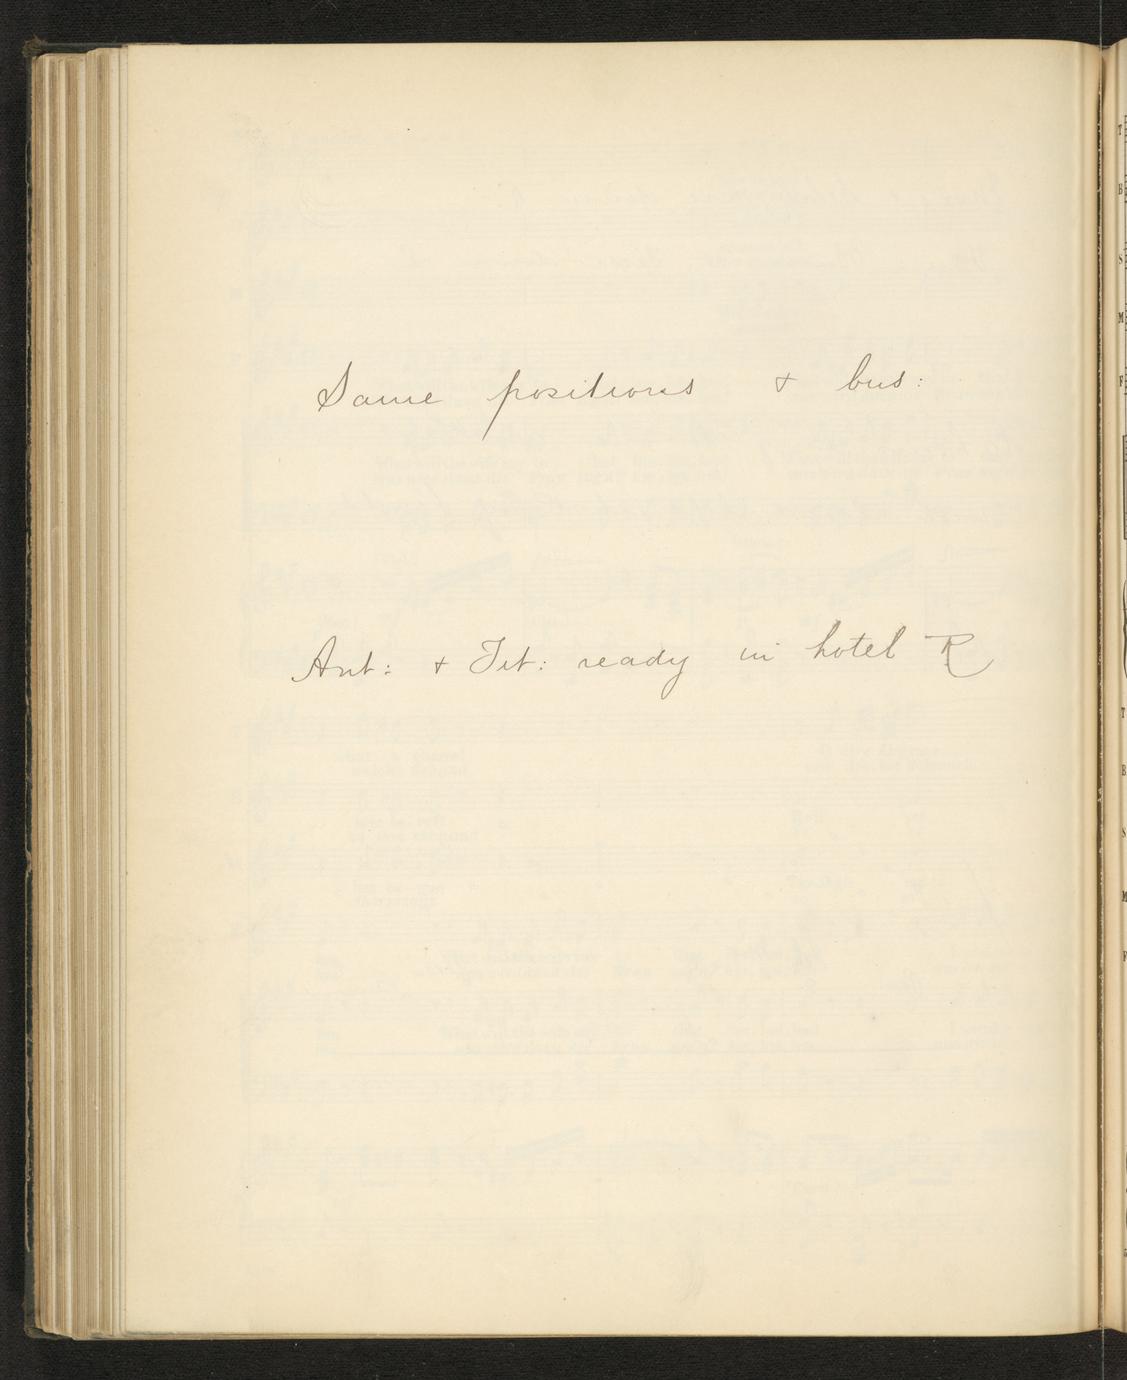 Same positions & bus:
Ant: & Tit: ready in hotel R
T
B
S
M
F
T
B
S
M
F